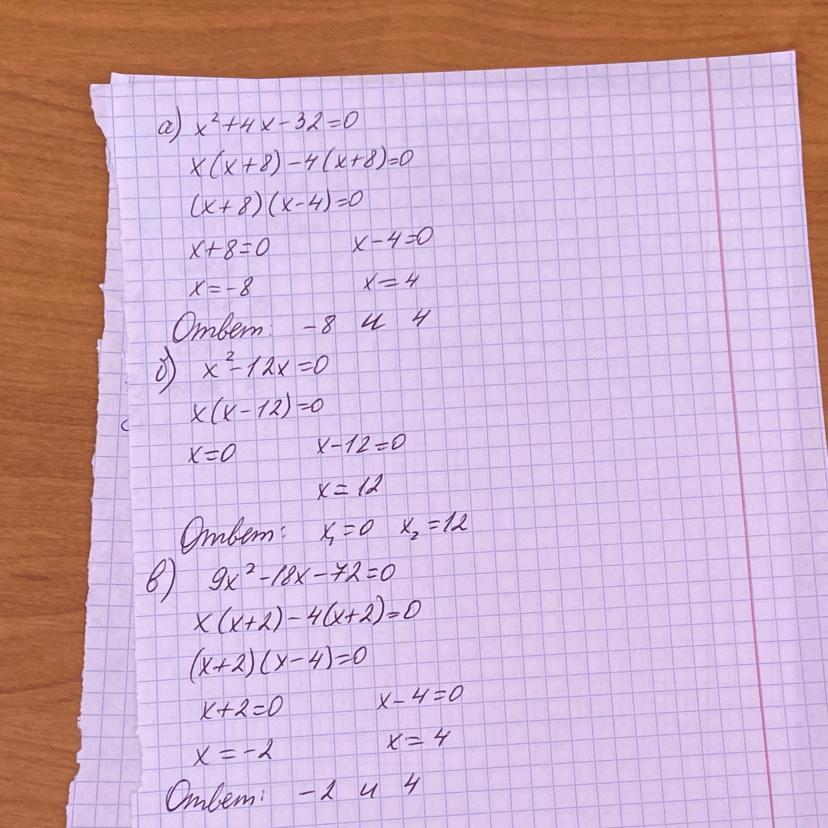 а) x²+4x-32=0
x(x+8)-4(x+8)=0
(x+8)(x-4)=0
x+8=0 x-4=0
x=-8 x=4
Ответ: -8 и 4
б) x²-12x=0
x(x-12)=0
x=0 x-12=0
x=12
Ответ: x₁=0 x₂=12
в) 9x²-18x-72=0
x(x+2)-4(x+2)=0
(x+2)(x-4)=0
x+2=0 x-4=0
x=-2 x=4
Ответ: -2 и 4